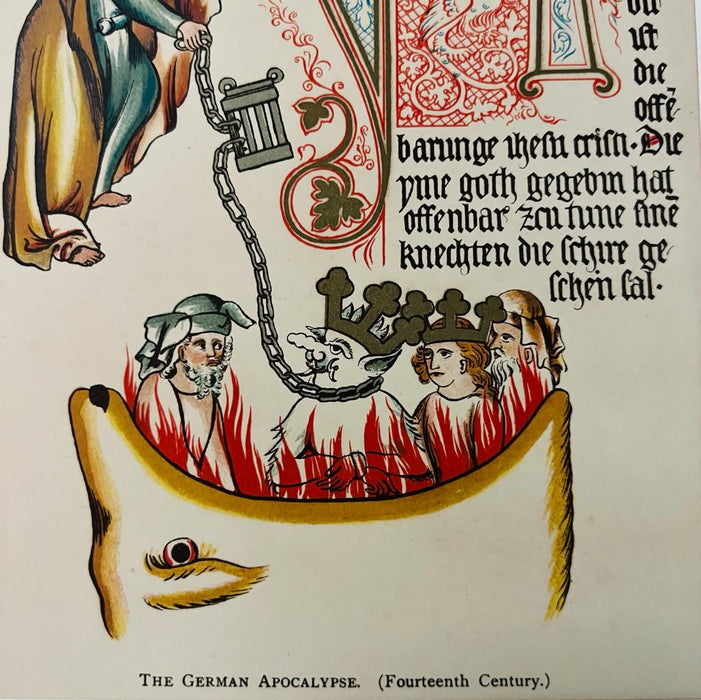 ist
die
offē
barunge ihesu cristi· Die
yme goth gegebin hat
offenbar zcu tune sinē
knechten die schire ge
schen sal·
THE GERMAN APOCALYPSE. (Fourteenth Century.)